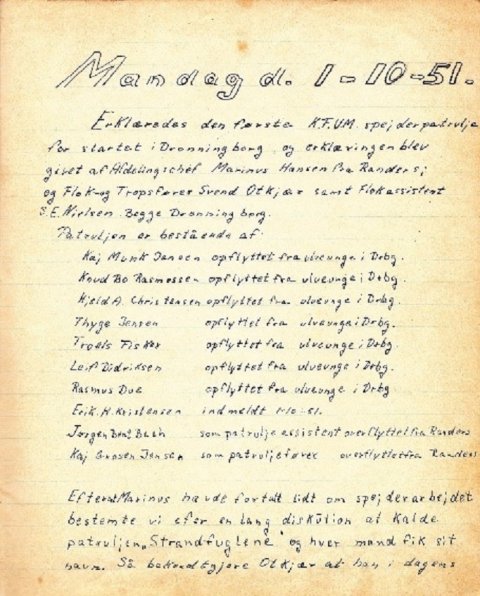 Mandag d. 1-10-51.
Erklæredes den første K.F.U.M. spejderpatrulje
for startet i Dronningborg, og erklæringen blev
givet af Afdelingschef Marinus Hansen fra Randers;
og Flok-og Tropsfører Svend Otkjær samt Flokassistent
S.E. Nielsen. Begge Dronningborg.
Patruljen er bestående af:
Kaj Munk Jensen opflyttet fra ulveunge i Drbg.
Knud Bo Rasmussen opflyttet fra ulveunge i Drbg.
Kjeld A. Christensen opflyttet fra ulveunge i Drbg.
Thyge Jensen opflyttet fra ulveunge i Drbg.
Troels Fisker opflyttet fra ulveunge i Drbg.
Leif Didriksen opflyttet fra ulveunge i Drbg.
Rasmus Due opflyttet fra ulveunge i Drbg.
Erik H. Kristensen indmeldt 1-10-51.
Jørgen Bach som patrulje assistent overflyttet fra Randers
Kaj Grosen Jensen som patruljefører overflyttet fra Randers
Efterat Marinus havde fortalt lidt om spejderarbejdet
bestemte vi efter en lang diskution at kalde
patruljen „Strandfuglene" og hver mand fik sit
navn. Så bekendtgjore Otkjær at han i dagens